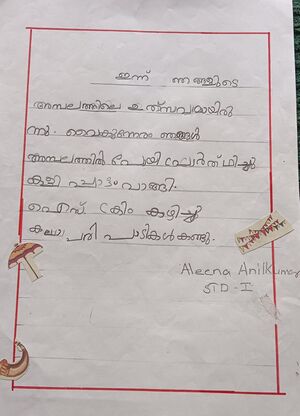 ഇന്ന് ഞങ്ങളുടെ
അമ്പലത്തിലെ ഉത്സവമായിരു
ന്നു. വൈകുന്നേരം ഞങ്ങൾ
അമ്പലത്തിൽ പോയി പ്രാർത്ഥിച്ചു
കളി പ്പാട്ടം വാങ്ങി.
ഐസ് ക്രീം കഴിച്ചു
കലാ പരി പാടികൾ കണ്ടു.
Aleena Anilkumar
STD-I